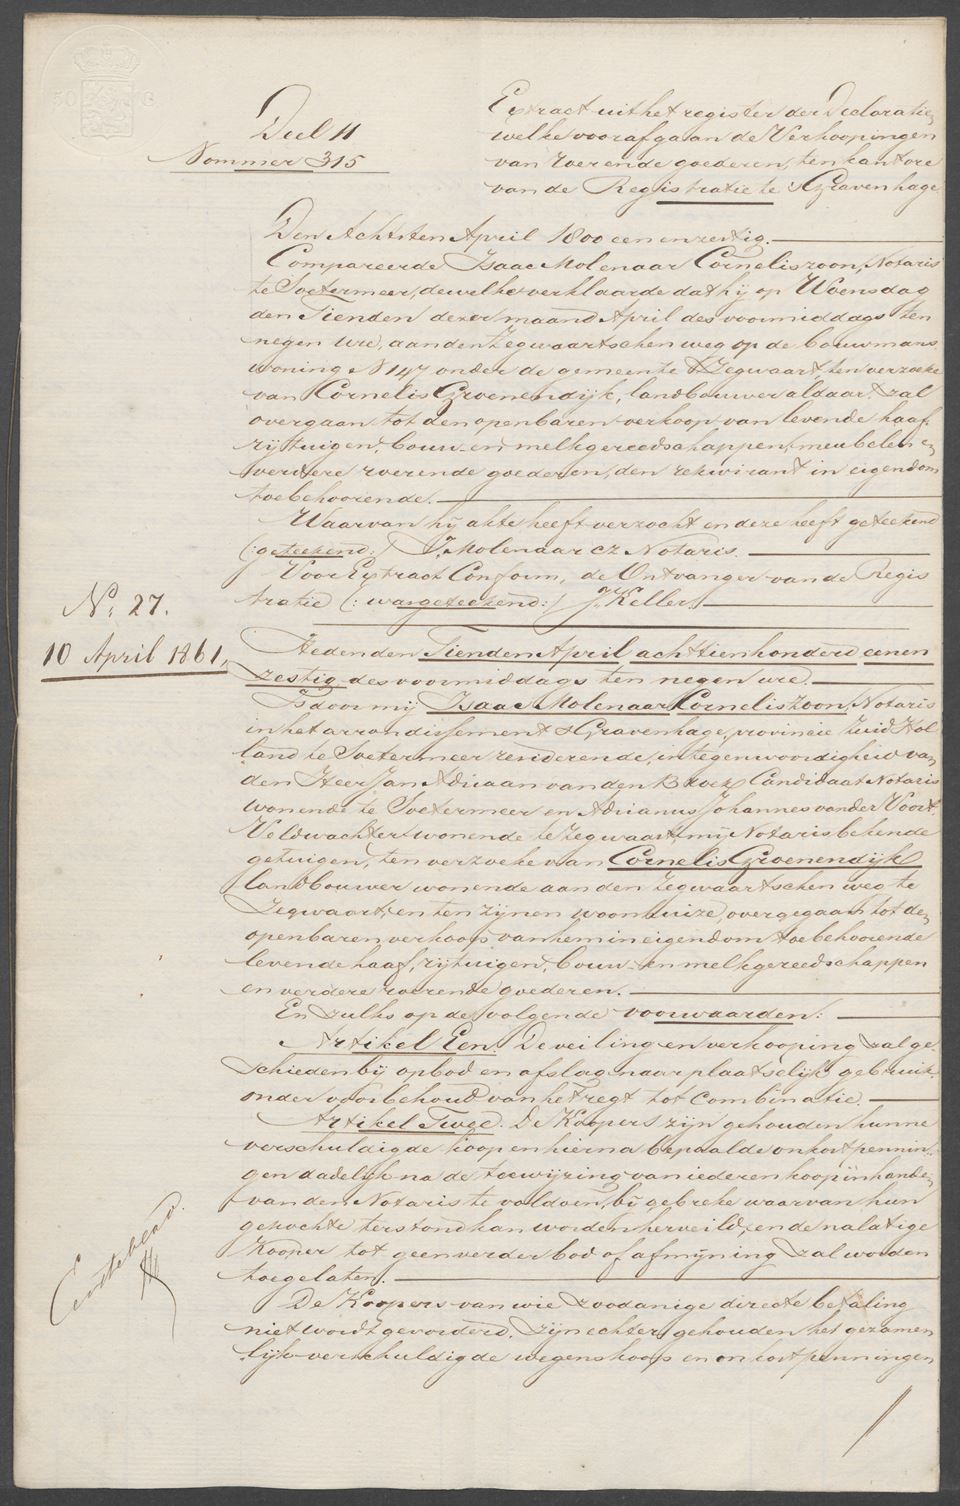 50 C
Deel 11
Nommer 315
Extract uit het register der Declaratien
welke voorafgaan de Verkoopingen
van roerende goederen, ten kantore
van de Registratie te 's Gravenhage
Den Achtsten April 1800 een en zestig.
Compareerde Isaac Molenaar Corneliszoon, Notaris
te Soetermeer, dewelke verklaarde dat hij op Woensdag
den Tienden dezer maand April des voormiddags ten
negen ure, aan den Zegwaartschen weg op de bouwmans
woning N 147 onder de gemeente Zegwaart, ten verzoeke
van Cornelis Groenendijk, landbouwer aldaar, zal
overgaan tot den openbaren verkoop van levende haaf,
rijtuigen, bouw en melkgereedschappen, meubelen en
verdere roerende goederen, den rekwirant in eigendom
toebehoorende.
Waarvan hij akte heeft verzocht en deze heeft geteekend
(:geteekend:) I. Molenaar Cz Notaris.
Voor Extract Conform, de Ontvanger van de Regis
tratie (: was geteekend:) J. Keller
No. 27.
10 April 1861,
Heden den Tienden April achttienhonderd een en
zestig des voormiddags ten negen ure.
Is door mij Isaac Molenaar Corneliszoon, Notaris
in het arrondissement 's Gravenhage, provincie Zuid Hol
land te Soetermeer residerende, in tegenwoordigheid van
den Heer Jan Adriaan van den Broek Candidaat Notaris
wonende te Soetermeer en Adrianus Johannes van der Voort,
Veldwachter wonende te Zegwaart, mij Notaris bekende
getuigen, ten verzoeke van Cornelis Groenendijk
landbouwer wonende aan den Zegwaartschen weg te
Zegwaart, en ten zijnen woonhuize, overgegaan tot den
openbaren verkoop van hem in eigendom toebehoorende
levende haaf, rijtuigen, bouw en melkgereedschappen
en verdere roerende goederen.
En zulks op de volgende voorwaarden:
Artikel Een. De veiling en verkooping zal ge-
schieden bij opbod en afslag naar plaatselijk gebruik
onder voorbehoud van het regt tot Combinatie.
Artikel Twee. De Koopers zijn gehouden hunne
verschuldigde koop en hierna bepaalde onkostpennin-
gen dadelijk na de toewijzing van iederen koop in handen
van den Notaris te voldoen, bij gebreke waarvan hun
gekochte terstond kan worden herveild, en de nalatige
Kooper tot geen verder bod of afmijning zal worden
toegelaten.
Eerste blad.
De Koopers van wie zoodanige directe betaling
niet wordt gevorderd, zijn echter gehouden het gezamen
lijk verschuldigde wegens koop en onkostpenningen